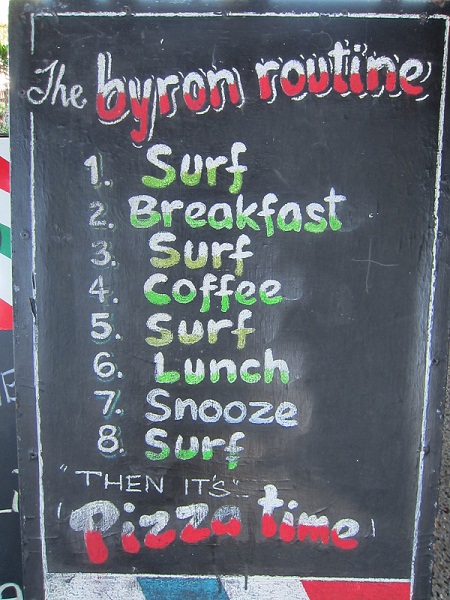 The byron routine
1. Surf
2. Breakfast
3. Surf
4. Coffee
5. Surf
6. Lunch
7. Snooze
8. Surf
"THEN IT'S"...
'Pizza time'